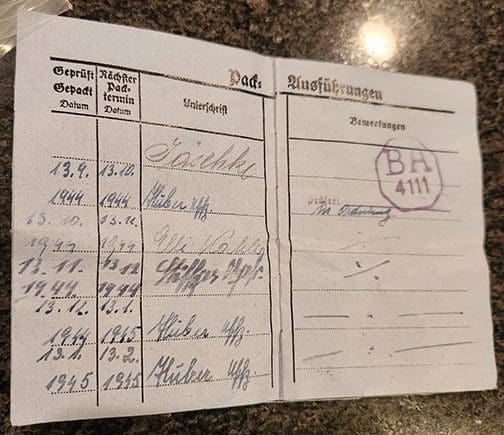 Pack-Ausführungen
Geprüft Gepackt Datum
Nächster Packtermin Datum
Unterschrift
Bemerkungen
Jäschke
BA
4111
13.9. 13.10.
1944 1944 Huber Uffz.
in Ordnung
13.10. 13.11.
1944 1944
13.11. 13.12.
1944 1944
13.12. 13.1.
1944 1945 Huber Uffz.
13.1. 13.2.
1945 1945 Huber Uffz.